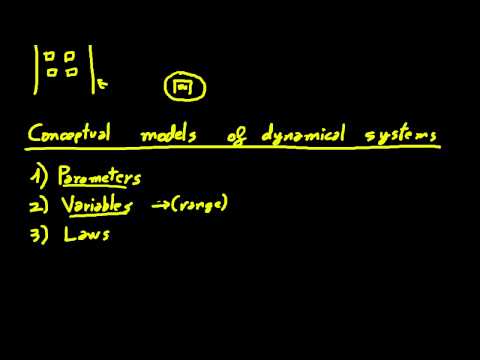 Conceptual models of dynamical systems
1) Parameters
2) Variables →(range)
3) Laws